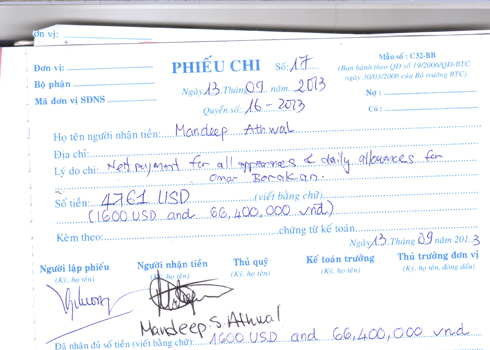 n vị:
Đơn vị:
Bộ phận
Mã đơn vị SDNS
PHIẾU CHI Số: 17
Ngày 13 Tháng 09 năm 2013
Quyển số: 16 - 2013
Mẫu số : C32-BB
(Ban hành theo QĐ số 19/2006/QĐ-BTC
ngày 30/03/2006 của Bộ trưởng BTC)
Nợ :
Có :
Họ tên người nhận tiền: Mandeep Athwal
Địa chỉ:
Lý do chi: Net payment for all & daily allowances for
Omar
Số tiền: 4761 USD (viết bằng chữ)
(1600 USD and 66,400,000 vnd)
Kèm theo: chứng từ kế toán
Ngày 13 Tháng 09 năm 2013
Người lập phiếu Người nhận tiền Thủ quỹ Kế toán trưởng Thủ trưởng đơn vị
(Ký, họ tên) họ tên) (Ký, họ tên) (Ký, họ tên) (Ký, họ tên, đóng dấu)
Mandeep S. Athwal
Đã nhận đủ số tiền (viết bằng chữ): 1600 USD and 66,400,000 vnd